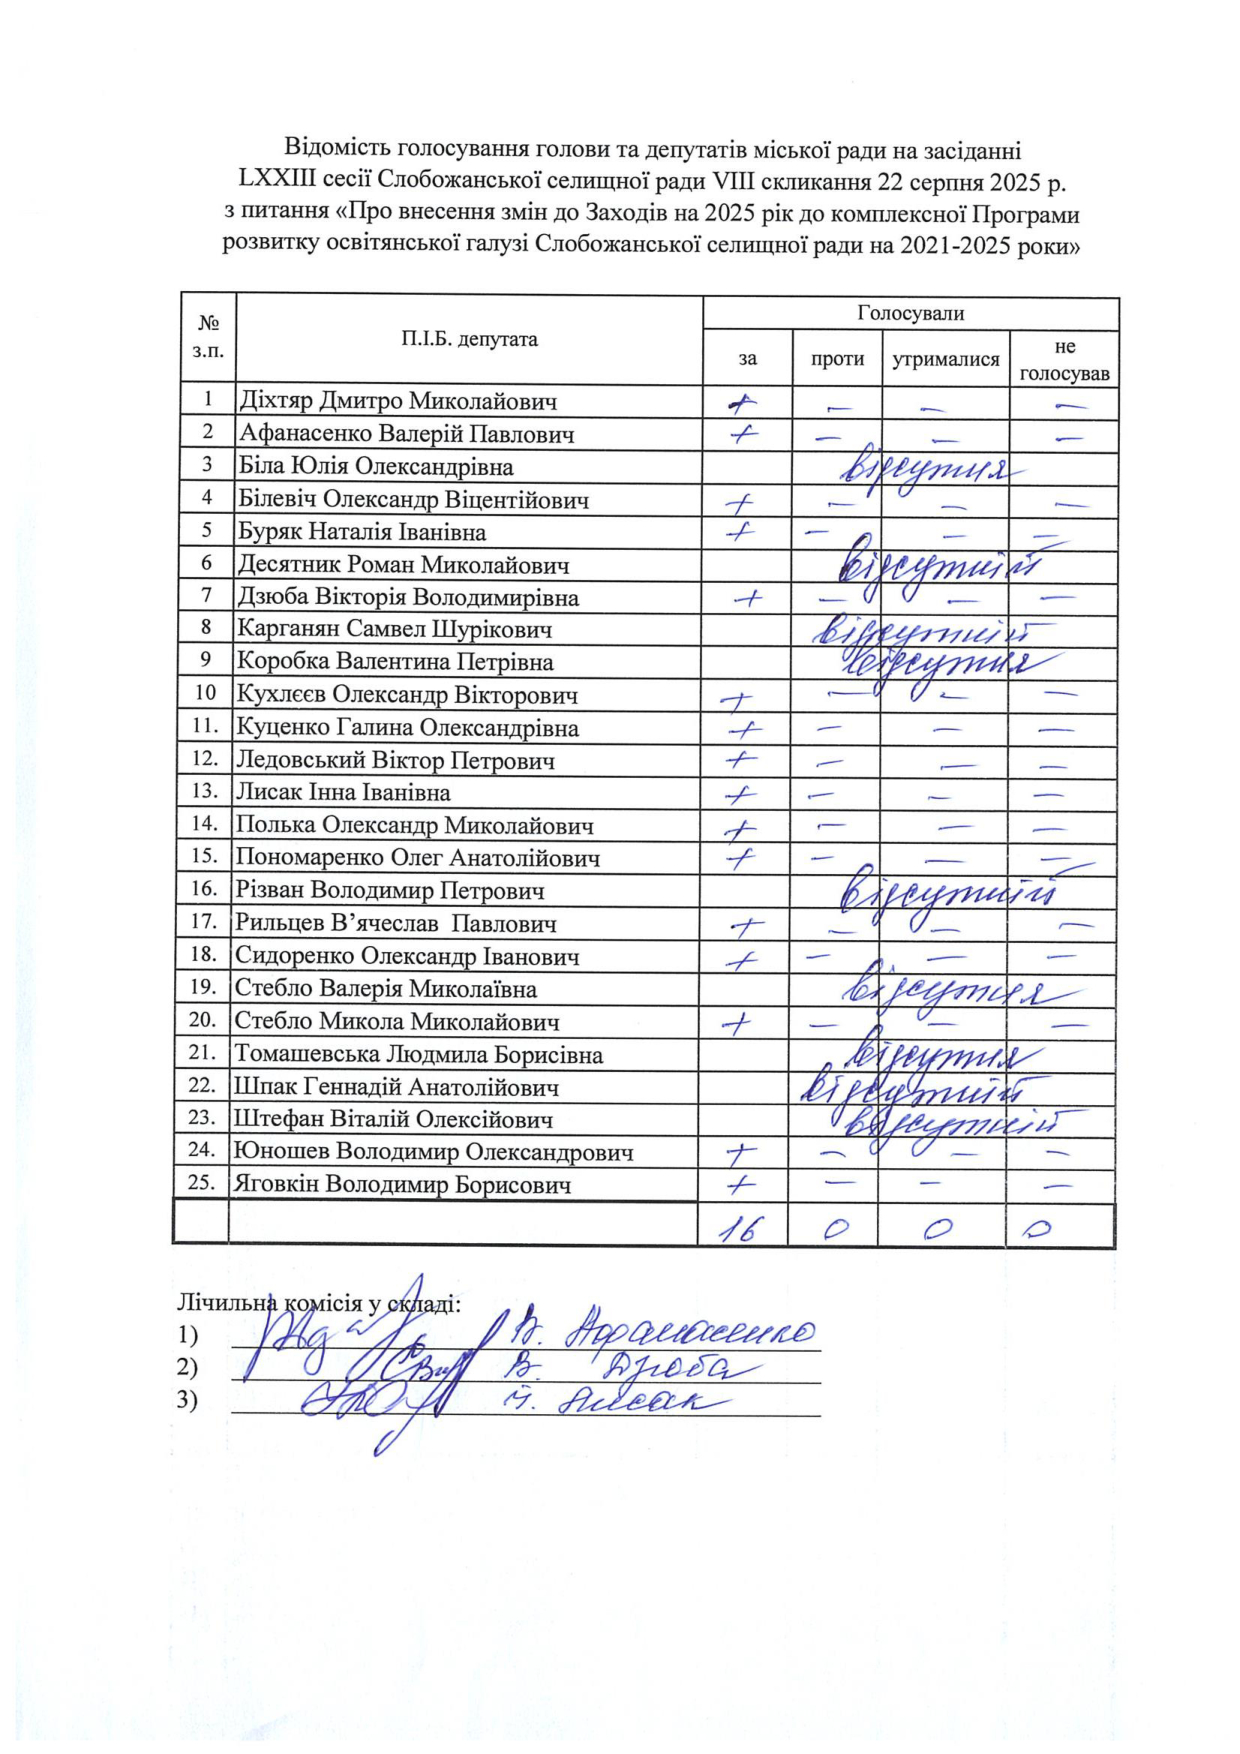 Відомість голосування голови та депутатів міської ради на засіданні
LXXIII сесії Слобожанської селищної ради VIII скликання 22 серпня 2025 р.
з питання «Про внесення змін до Заходів на 2025 рік до комплексної Програми
розвитку освітянської галузі Слобожанської селищної ради на 2021-2025 роки»
№ з.п. П.І.Б. депутата Голосували
за проти утрималися не голосував
1 Діхтяр Дмитро Миколайович + – – –
2 Афанасенко Валерій Павлович + – – –
3 Біла Юлія Олександрівна відсутня
4 Білевіч Олександр Віцентійович + – – –
5 Буряк Наталія Іванівна + – – –
6 Десятник Роман Миколайович відсутній
7 Дзюба Вікторія Володимирівна + – – –
8 Карганян Самвел Шурікович відсутній
9 Коробка Валентина Петрівна відсутня
10 Кухлєєв Олександр Вікторович + – – –
11. Куценко Галина Олександрівна + – – –
12. Ледовський Віктор Петрович + – – –
13. Лисак Інна Іванівна + – – –
14. Полька Олександр Миколайович + – – –
15. Пономаренко Олег Анатолійович + – – –
16. Різван Володимир Петрович відсутній
17. Рильцев В’ячеслав Павлович + – – –
18. Сидоренко Олександр Іванович + – – –
19. Стебло Валерія Миколаївна відсутня
20. Стебло Микола Миколайович + – – –
21. Томашевська Людмила Борисівна відсутня
22. Шпак Геннадій Анатолійович відсутній
23. Штефан Віталій Олексійович відсутній
24. Юношев Володимир Олександрович + – – –
25. Яговкін Володимир Борисович + – – –
16 0 0 0
Лічильна комісія у складі:
1) В. Афанасенко
2) В. Дзюба
3) І. Лисак